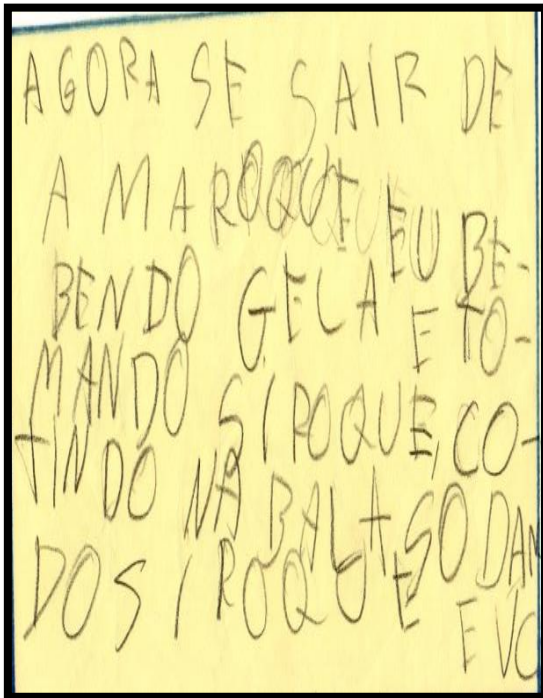 AGORA SE SAIR DE
AMAROQUE EU BE-
BENDO GELA E TO-
MANDO SIROQUE, CO-
TINDO NA BALA SO DAN
DO SIROQUE E VO